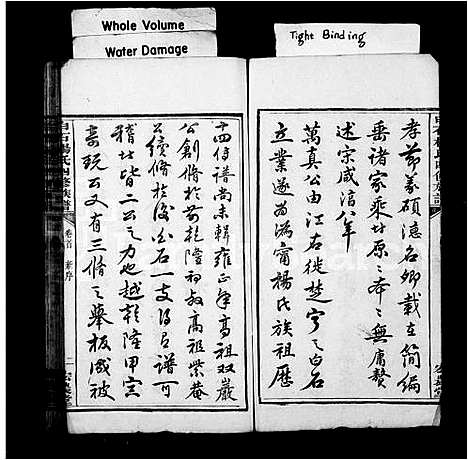 Whole Volume
Water Damage
Tight Binding
孝節義碩德名卿載在簡編
垂諸家乘班班原原本本無庸贅
述宋咸淳八年
萬真公由江右徙楚寧之白石
立業遂為溈甯楊氏族祖歷
十四傳譜尚未輯雍正年高祖雙巖
公創脩於前乾隆初叔高祖紫菴
公續脩於後白石一支得有譜可
稽者皆二公之力也越乾隆甲寅
堯既公又有三脩之舉板減被
卷首
新序
二